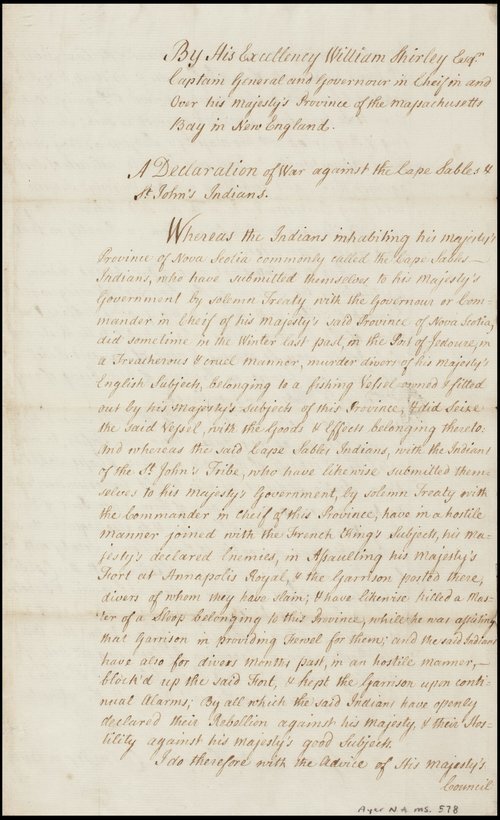 By His Excellency William Shirley Esqr.
Captain General and Governour in Cheif in and
Over his Majesty's Province of the Massachusetts
Bay in New England.
A Declaration of War against the Cape Sables &
St. John's Indians.
Whereas the Indians inhabiting his Majesty's
Province of Nova Scotia commonly called the Cape Sables
Indians, who have submitted themselves to his Majesty's
Government by solemn Treaty with the Governour or Com-
mander in Cheif of his Majesty's said Province of Nova Scotia,
did sometime in the Winter last past, in the Port of Jedoure, in
a Treacherous & cruel manner, murder divers of his Majesty's
English Subjects, belonging to a fishing Vessel owned & fitted
out by his Majesty's Subjects of this Province, & did Seize
the said Vessel, with the Goods & Effects belonging thereto:
And whereas the said Cape Sables Indians, with the Indians
of the St. John's Tribe, who have likewise submitted them
selves to his Majesty's Government, by solemn Treaty with
the Commander in Cheif of this Province, have in a hostile
manner joined with the French King's Subjects, his Ma-
jesty's declared Enemies, in Assaulting his Majesty's
Fort at Annapolis Royal, & the Garrison posted there,
divers of whom they have slain; & have likewise killed a Mas-
ter of a Sloop belonging to this Province, while he was assisting
that Garrison in providing Fewel for them; and the said Indians
have also for divers Months past, in an hostile manner,
block'd up the said Fort, & kept the Garrison upon conti-
nual Alarms; By all which the said Indians have openly
declared their Rebellion against his Majesty, & their Hos-
tility against his Majesty's good Subjects.
I do therefore with the Advice of His Majesty's
Council
Ayer N A ms. 578